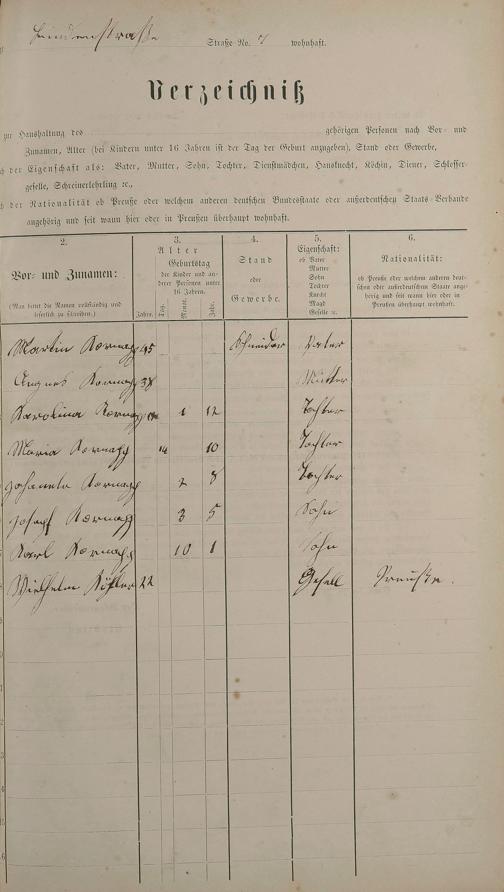 Lindenstraße Straße No. 7 wohnhaft.
Verzeichniß
zur Haushaltung des gehörigen Personen nach Vor- und
Zunamen, Alter (bei Kindern unter 16 Jahren ist der Tag der Geburt anzugeben), Stand oder Gewerbe,
der Eigenschaft als: Vater, Mutter, Sohn, Tochter, Dienstmädchen, Hausknecht, Köchin, Diener, Schlosser-
geselle, Schreinerlehrling ꝛc.,
der Nationalität ob Preuße oder welchem anderen deutschen Bundesstaate oder außerdeutschen Staats-Verbande
angehörig und seit wann hier oder in Preußen überhaupt wohnhaft.
2. 3. 4. 5. 6.
Vor- und Zunamen:
(Man bittet die Namen vollständig und
leserlich zu schreiben.)
Alter
Geburtstag
der Kinder und an-
derer Personen unter
16 Jahren.
Jahre. Tag. Monat. Jahr.
Stand
oder
Gewerbe.
Eigenschaft:
ob Vater
Mutter
Sohn
Tochter
Knecht
Magd
Geselle ꝛc.
Nationalität:
ob Preuße oder welchem anderen deut-
schen oder außerdeutschen Staate ange-
hörig und seit wann hier oder in
Preußen überhaupt wohnhaft.
Martin 45 Schneider Vater
Agnes 38 Mutter
Karolina 1 12 Tochter
Maria 14 10 Tochter
Johanna 2 8 Tochter
Josef 3 5 Sohn
Karl 10 1 Sohn
Wielhelm 22 Gesell Preuße.